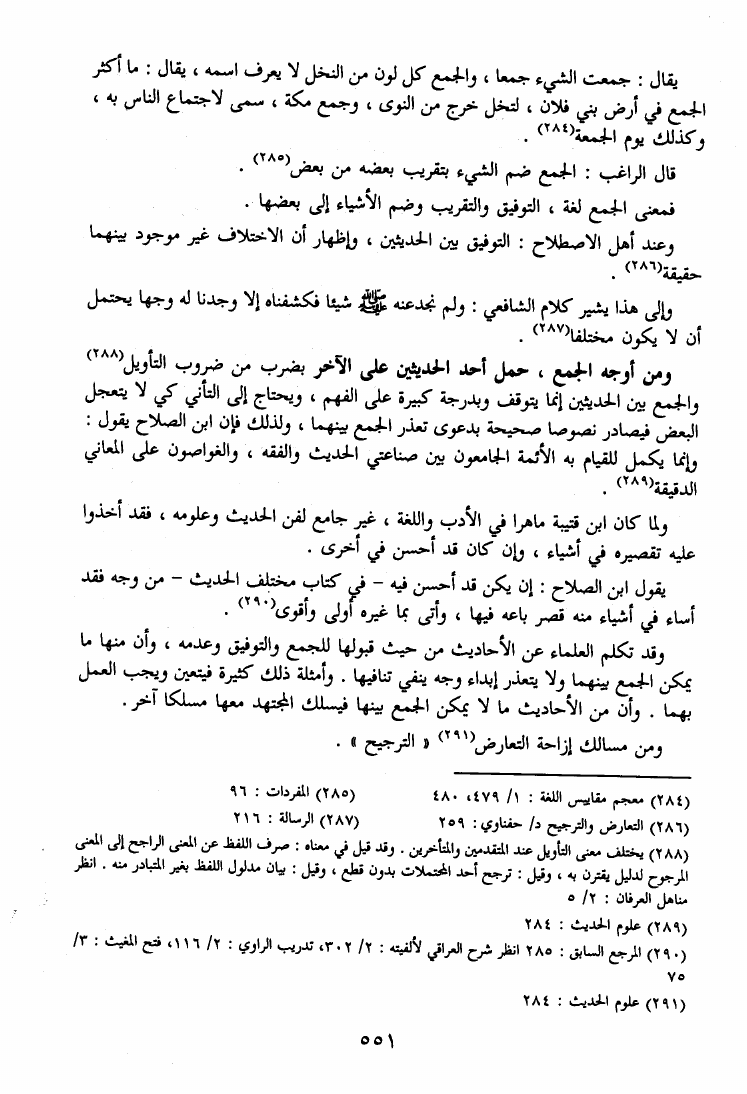 يقال : جمعت الشيء جمعا ، والجمع كل لون من النخل لا يعرف اسمه ، يقال : ما أكثر
الجمع في أرض بني فلان ، لتخل خرج من النوى ، وجمع مكة ، سمى لاجتماع الناس به ،
وكذلك يوم الجمعة(٢٨٤) .
قال الراغب : الجمع ضم الشيء بتقريب بعضه من بعض(٢٨٥) .
فمعنى الجمع لغة ، التوفيق والتقريب وضم الأشياء إلى بعضها .
وعند أهل الاصطلاح : التوفيق بين الحديثين ، وإظهار أن الاختلاف غير موجود بينهما
حقيقة(٢٨٦) .
وإلى هذا يشير كلام الشافعي : ولم نجدعنه ﷺ شيئا فكشفناه إلا وجدنا له وجها يحتمل
أن لا يكون مختلفا(٢٨٧) .
ومن أوجه الجمع ، حمل أحد الحديثين على الآخر بضرب من ضروب التأويل(٢٨٨)
والجمع بين الحديثين إنما يتوقف وبدرجة كبيرة على الفهم ، ويحتاج إلى التأني كي لا يتعجل
البعض فيصادر نصوصا صحيحة بدعوى تعذر الجمع بينهما ، ولذلك فإن ابن الصلاح يقول :
وإنما يكمل للقيام به الأئمة الجامعون بين صناعتي الحديث والفقه ، والغواصون على المعاني
الدقيقة(٢٨٩) .
ولما كان ابن قتيبة ماهرا في الأدب واللغة ، غير جامع لفن الحديث وعلومه ، فقد أخذوا
عليه تقصيره في أشياء ، وإن كان قد أحسن في أخرى .
يقول ابن الصلاح : إن يكن قد أحسن فيه – في كتاب مختلف الحديث – من وجه فقد
أساء في أشياء منه قصر باعه فيها ، وأتى بما غيره أولى وأقوى(٢٩٠) .
وقد تكلم العلماء عن الأحاديث من حيث قبولها للجمع والتوفيق وعدمه ، وأن منها ما
يمكن الجمع بينهما ولا يتعذر إبداء وجه ينفي تنافيها . وأمثلة ذلك كثيرة فيتعين ويجب العمل
بهما . وأن من الأحاديث ما لا يمكن الجمع بينها فيسلك المجتهد معها مسلكا آخر .
ومن مسالك إزاحة التعارض(٢٩١) « الترجيح » .
(٢٨٤) معجم مقاييس اللغة : ١/ ٤٧٩، ٤٨٠ (٢٨٥) المفردات : ٩٦
(٢٨٦) التعارض والترجيح د/ حفناوي: ٢٥٩ (٢٨٧) الرسالة : ٢١٦
(٢٨٨) يختلف معنى التأويل عند المتقدمين والمتأخرين . وقد قيل في معناه : صرف اللفظ عن المعنى الراجح إلى المعنى
المرجوح لدليل يقترن به ، وقيل : ترجح أحد المحتملات بدون قطع ، وقيل : بيان مدلول اللفظ بغير المتبادر منه . انظر
مناهل العرفان : ٢/ ٥
(٢٨٩) علوم الحديث : ٢٨٤
(٢٩٠) المرجع السابق : ٢٨٥ انظر شرح العراقي لألفيته : ٢/ ٣٠٢، تدريب الراوي : ٢/ ١١٦، فتح المغيث : ٣/
٧٥
(٢٩١) علوم الحديث : ٢٨٤
٥٥١